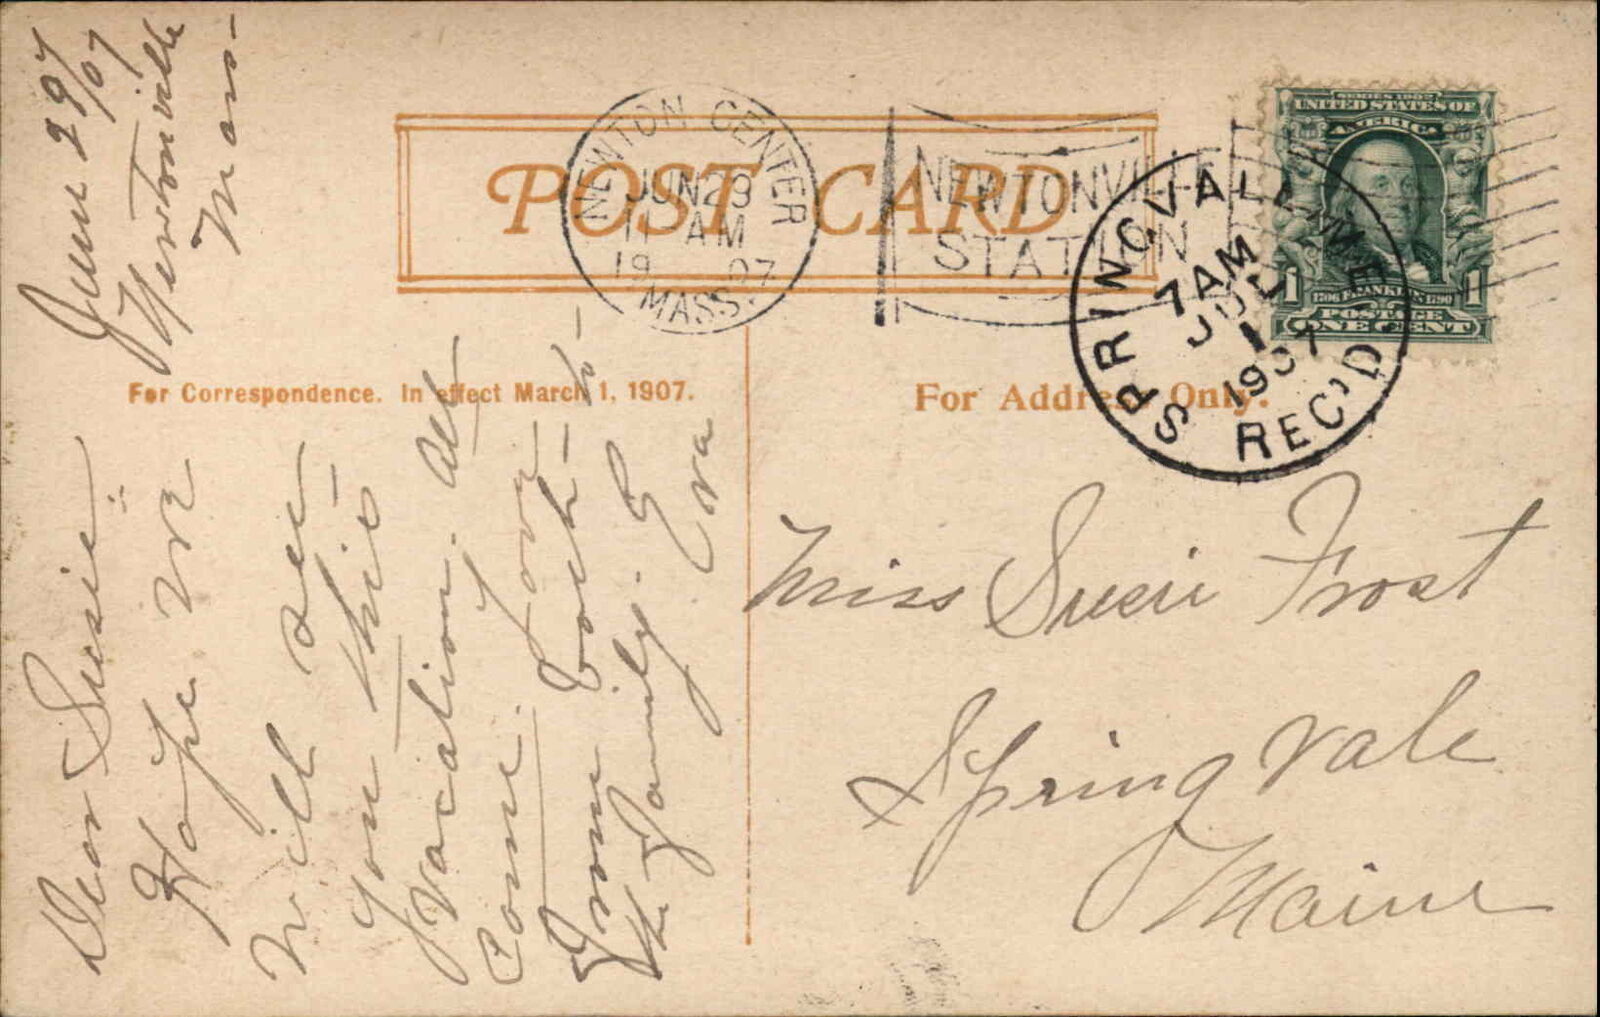 June 29/07
Newtonville
Mass-
Dear Susie:-
Hope we
will see
you this
vacation. All
come. Love
from both to
the family. E
Eva
POST CARD
For Correspondence. In effect March 1, 1907.
For Address Only.
NEWTON CENTER
JUN 29
11 AM
19 07
MASS.
NEWTONVILLE
STATION
SERIES 1902
UNITED STATES OF
AMERICA
1706 FRANKLIN 1790
1 1
POSTAGE
ONE CENT
SPRINGVALE, ME.
7 AM
JUL
1
1907
REC'D.
Miss Susie Frost
Springvale
Maine